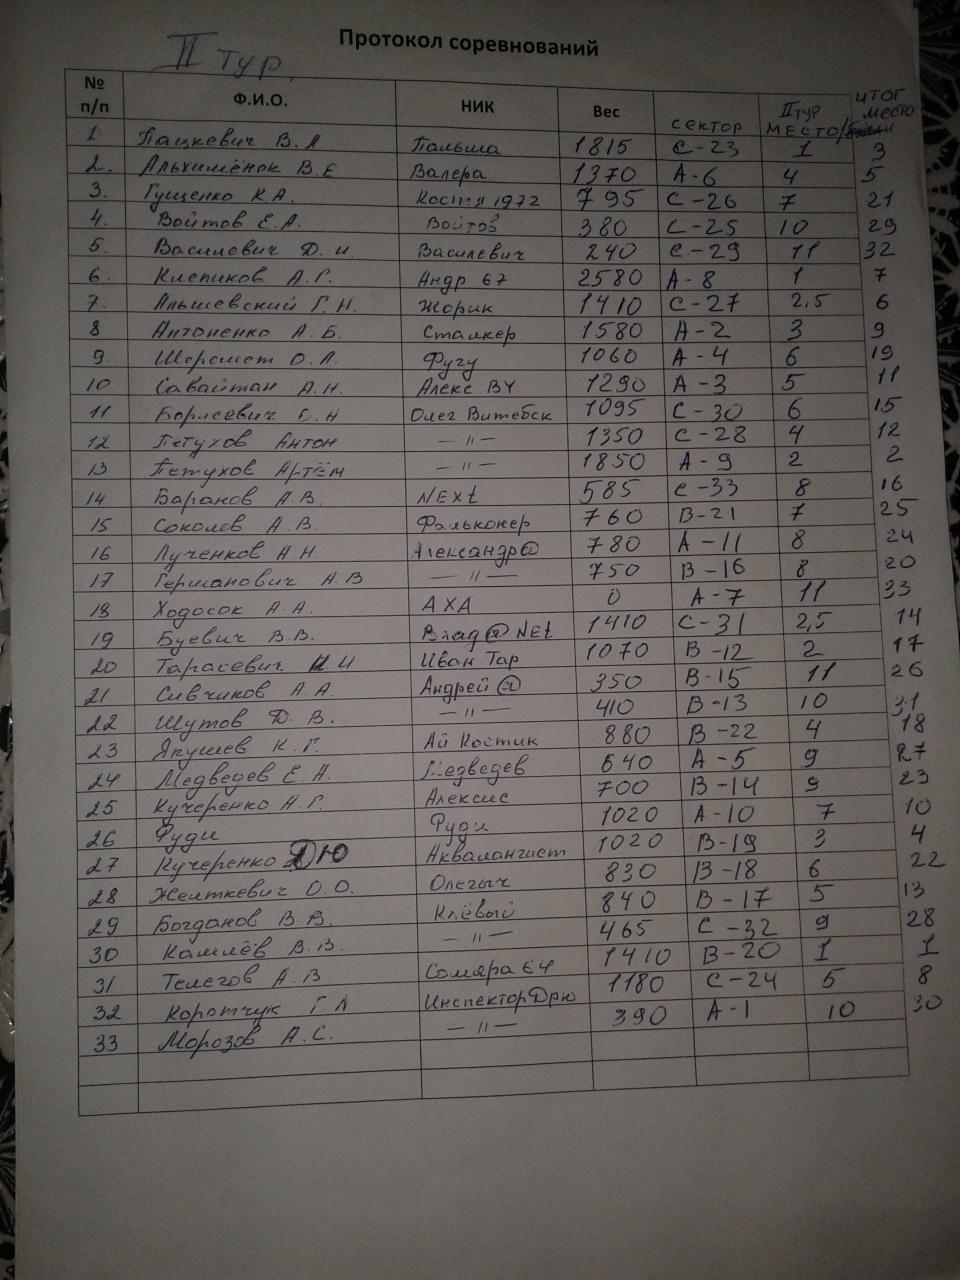 Протокол соревнований
II тур
№ п/п Ф.И.О. НИК Вес сектор II тур место/баллы итог место
1 Пацкевич В.Л Пальма 1815 С-23 1 3
2. Альхимёнок В.Е Валера 1370 А-6 4 5
3. Гущенко К.А. Костя 1972 795 С-26 7 21
4. Войтов Е.А. Войтов 380 С-25 10 29
5. Василевич Д.И. Василевич 240 С-29 11 32
6. Клепиков А.Г. Андр 67 2580 А-8 1 7
7. Альшевский Г.Н. Жорик 1410 С-27 2,5 6
8 Антоненко А.Б. Сталкер 1580 А-2 3 9
9. Шеремет О.Л. Фугу 1060 А-4 6 19
10 Савайтан А.Н. Алекс BY 1290 А-3 5 11
11 Борисевич О.Н Олег Витебск 1095 С-30 6 15
12 Петухов Антон — " — 1350 С-28 4 12
13 Петухов Артём — " — 1850 А-9 2 2
14 Баранов А.В. NExt 585 С-33 8 16
15 Соколов А.В. Фальконер 760 В-21 7 25
16 Лученков А.Н. Александр@ 780 А-11 8 24
17 Германович А.В — " — 750 В-16 8 20
18 Ходосок А.А. АХА 0 А-7 11 33
19 Буевич В.В. Влад@NEt 1410 С-31 2,5 14
20 Тарасевич И.И Иван Тар 1070 В-12 2 17
21 Сивчиков А.А. Андрей@ 350 В-15 11 26
22 Шутов Д.В. — " — 410 В-13 10 31
23 Якушев К.Г. Ай Костик 880 В-22 4 18
24 Медведев Е.А. Медведев 640 А-5 9 27
25 Кучеренко А.Г. Алексис 700 В-14 9 23
26 Руди Руди 1020 А-10 7 10
27 Кучеренко ДЮ Аквалангист 1020 В-19 3 4
28 Желткевич О.О. Олегыч 830 В-18 6 22
29 Богданов В.В. Клёвый 840 В-17 5 13
30 Камлёв В.В. — " — 465 С-32 9 28
31 Телегов А.В Сомяра 64 1410 В-20 1 1
32 Коротчук Г.Л ИнспекторДрю 1180 С-24 5 8
33 Морозов А.С. — " — 390 А-1 10 30